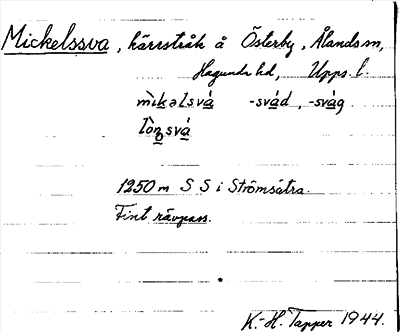 Mickelssva, kärrstråk å Österby, Ålands sn,
Hagunda hd, Upps. l.
mìkəlsvá -sväd, -svag
lòŋsvá
1250 m S S i Strömsätra.
Fint rävpass.
K.-H. Tapper 1944.